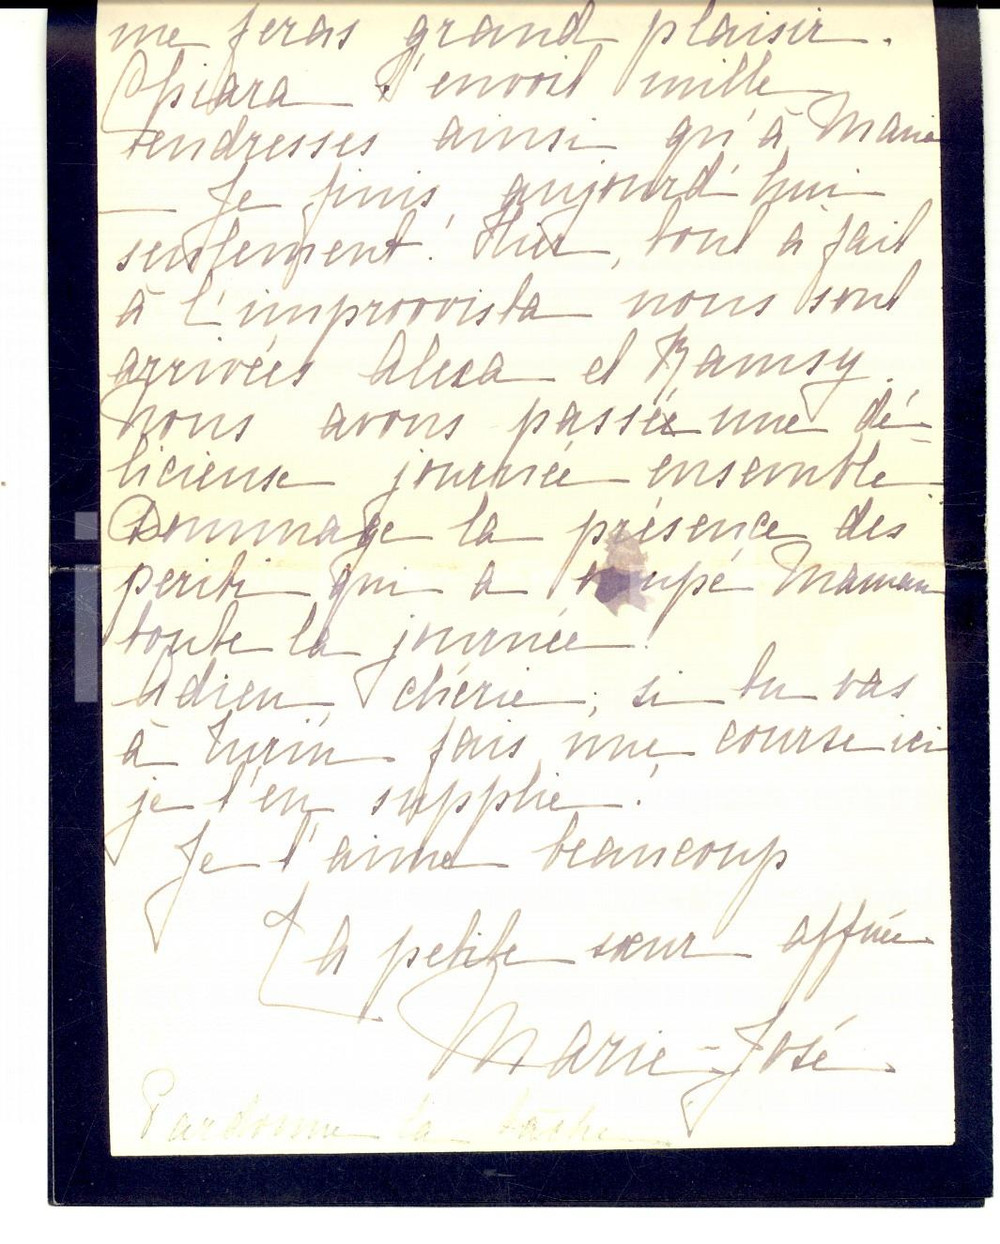 me feras grand plaisir.
Chiara t'envoit mille
tendresses ainsi qu'à Maria
— Je finis aujourd'hui
seulement! Hier, tout à fait
à l'improovista nous sont
arrivées Alexa et Ramsy.
Nous avons passée une dé-
licieuse journée ensemble.
Dommage la présence des
periti qui a occupé Maman
toute la journée!
Adieu, chérie; si tu vas
à Turin fais une course ici
je t'en supplie!
Je t'aime beaucoup
Ta petite sœur affnée
Marie-José
Pardonne la tache